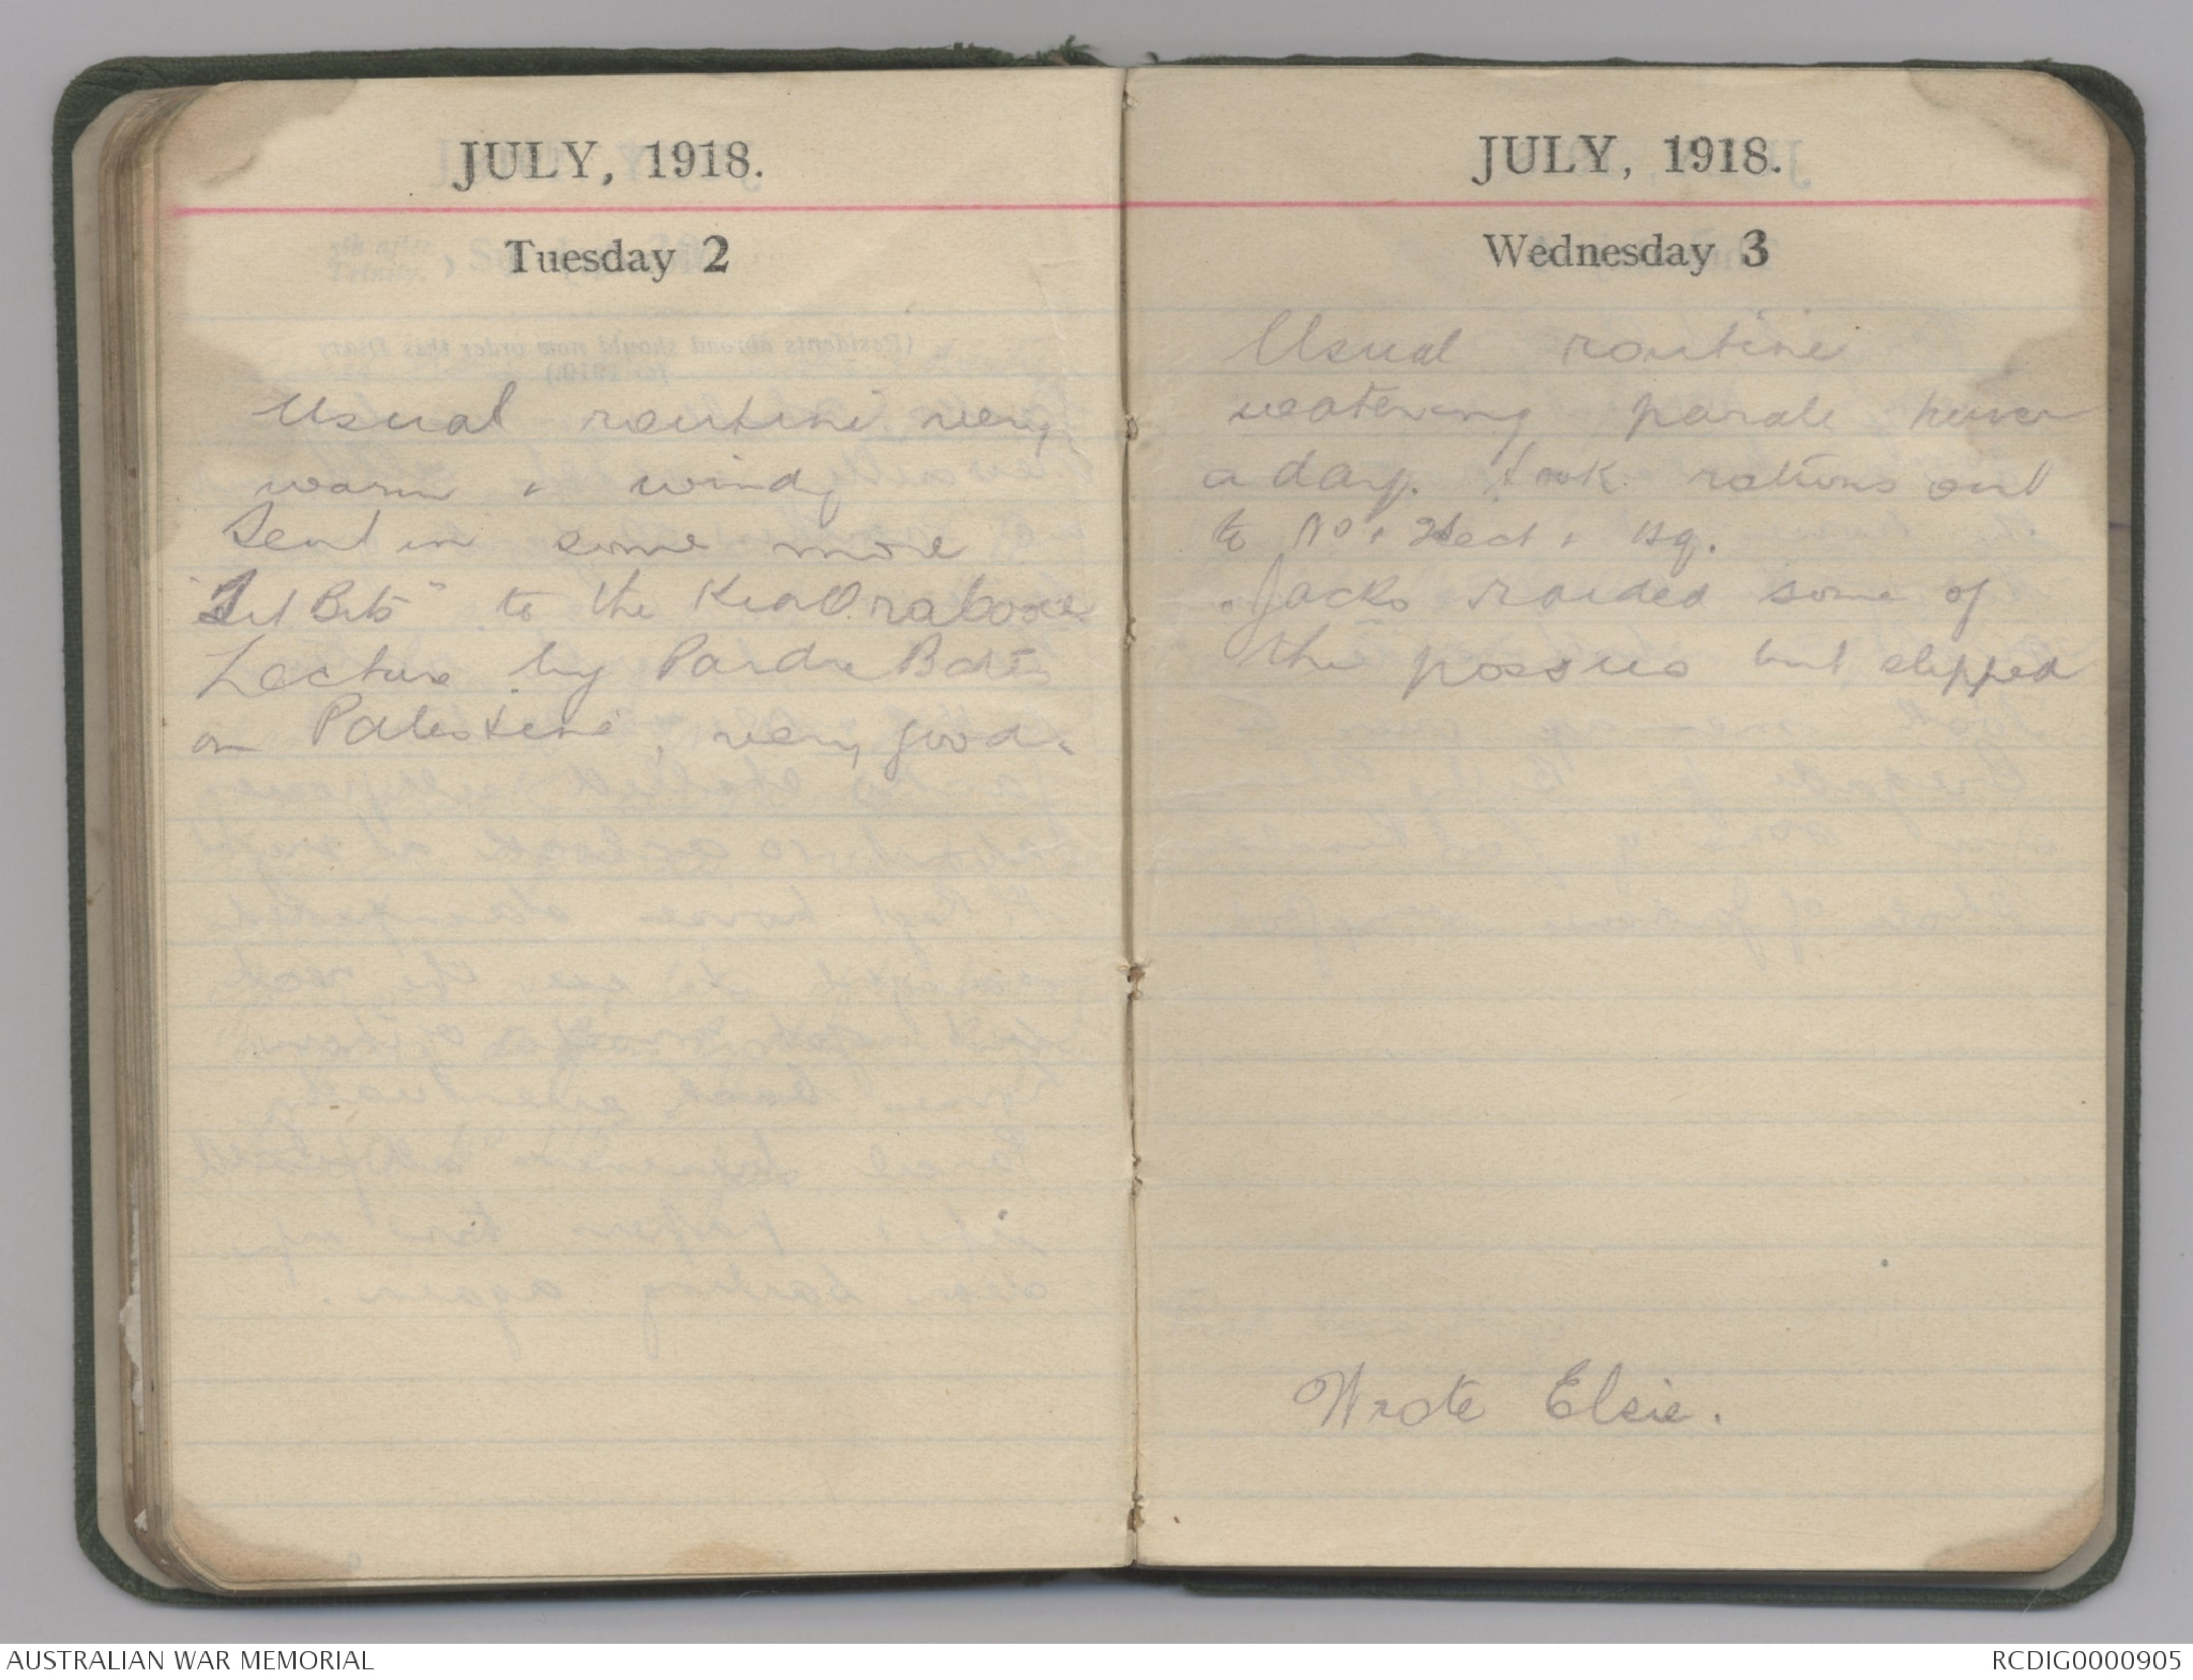 JULY, 1918.
Tuesday 2
Usual routine, very
warm & windy
Sent in some more
"Tit Bits" to the KiaOra
Lecture by Padre Bates
on Palestine, very good.
JULY, 1918.
Wednesday 3
Usual routine
watering parade
a day. took rations out
to No 1 Sect & Hq.
Jacko raided some of
the possies but slipped
Wrote Elsie.
AUSTRALIAN WAR MEMORIAL
RCDIG0000905